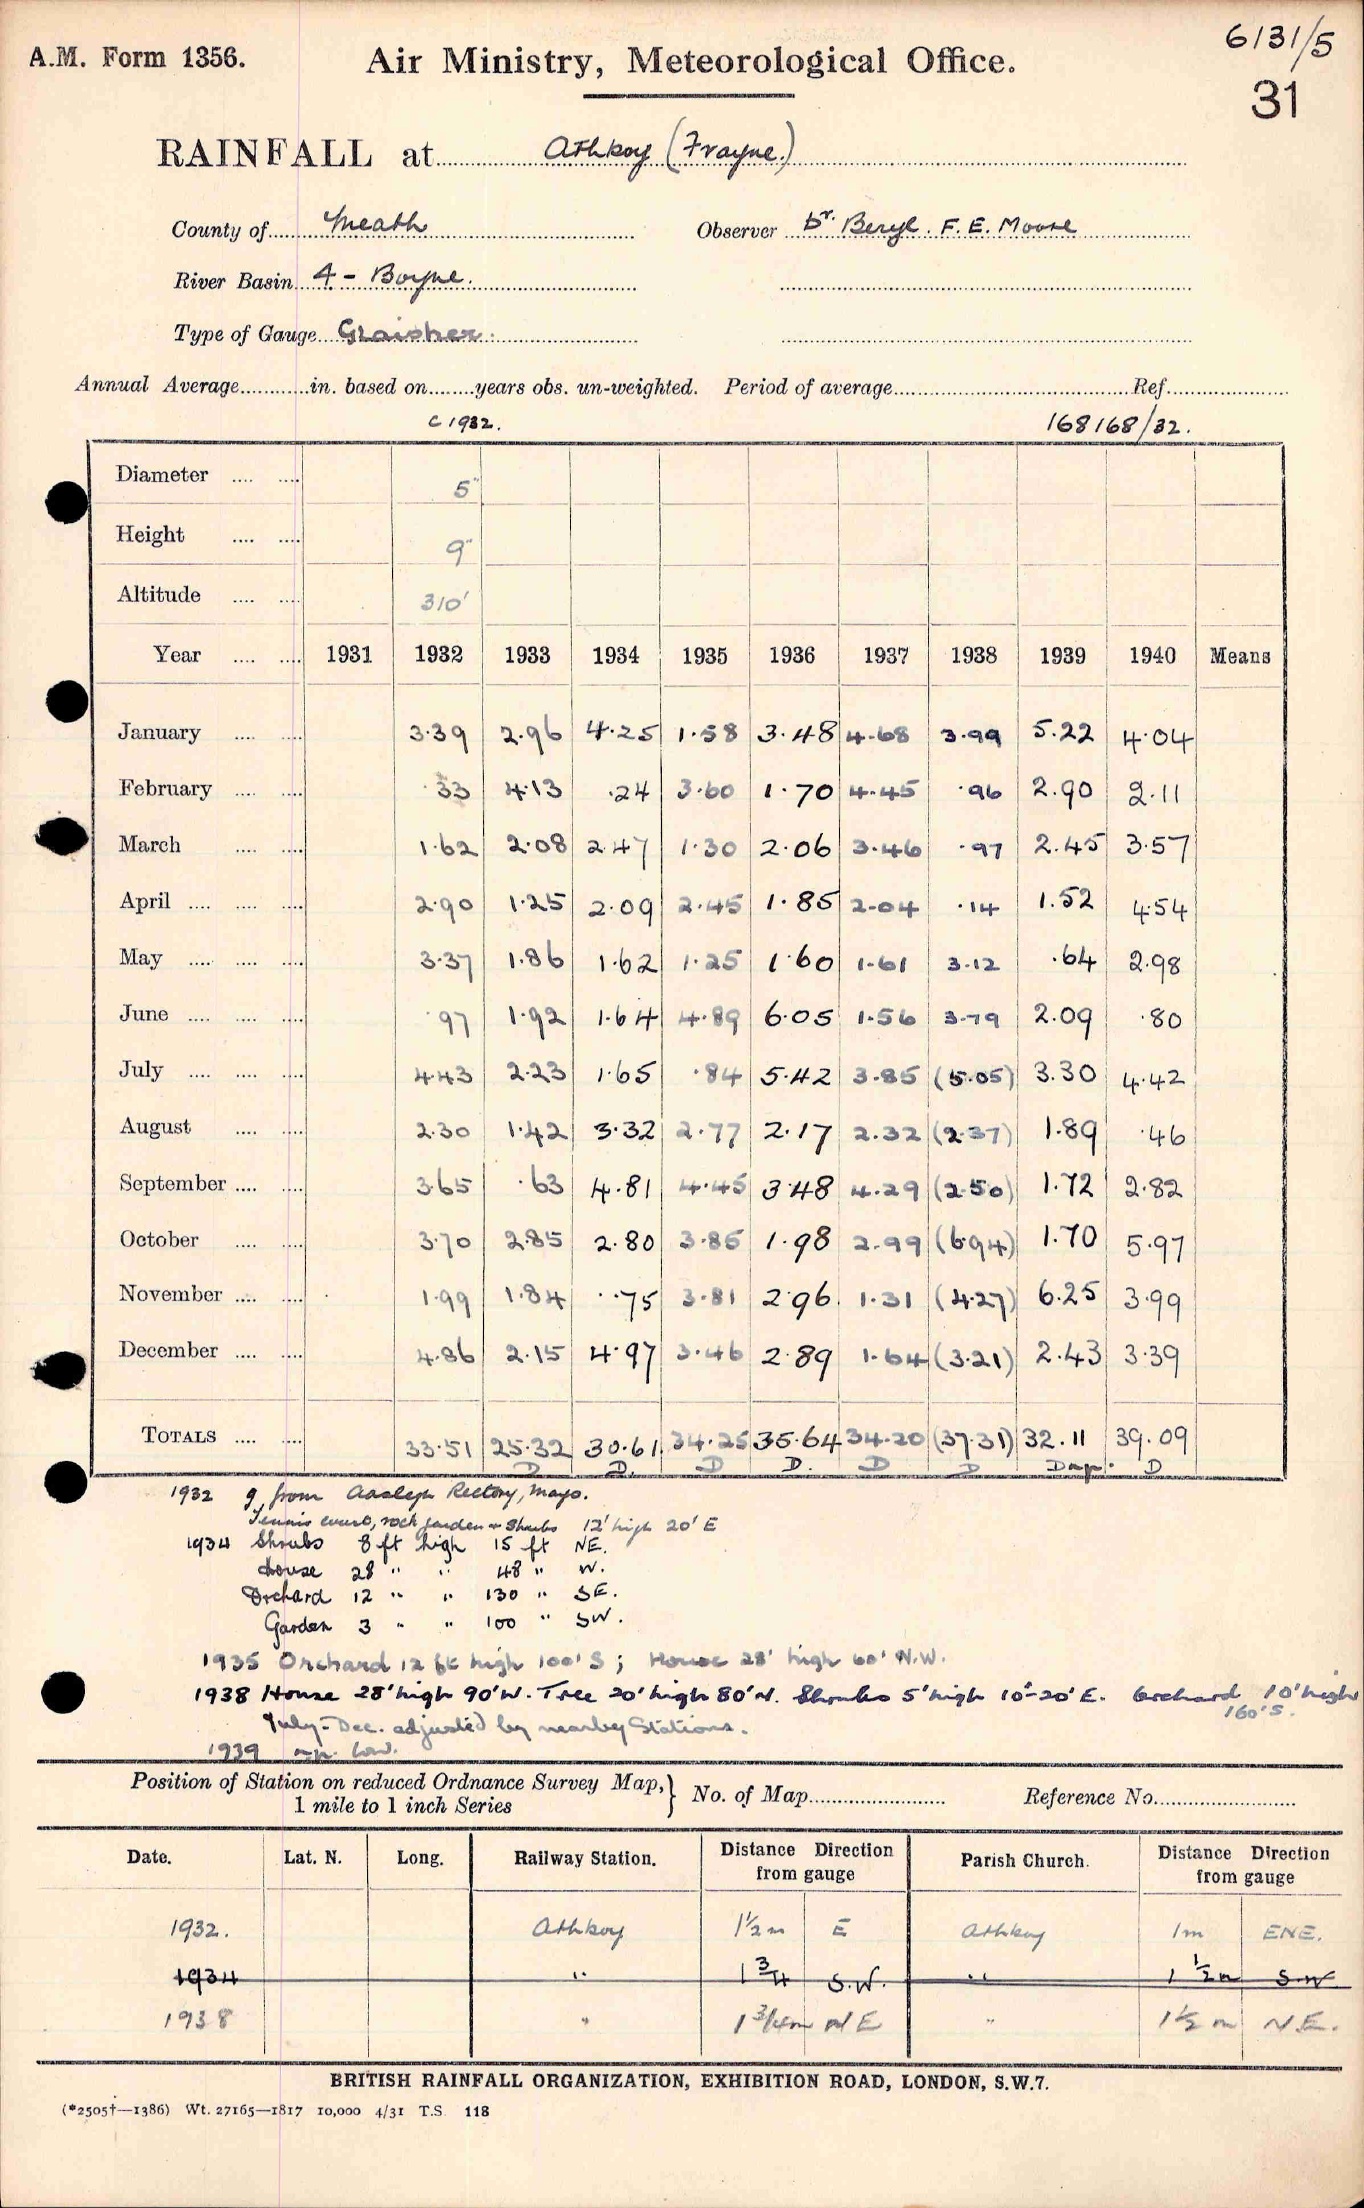 6131/5
A.M. Form 1356. Air Ministry, Meteorological Office.
31
RAINFALL at Athboy (Frayne.)
County of Meath Observer Dr. Beryl F. E. Moore
River Basin 4 - Boyne.
Type of Gauge Glaisher.
Annual Average in. based on years obs. un-weighted. Period of average Ref.
c 1932. 168168/32.
Diameter 5"
Height 9"
Altitude 310'
Year 1931 1932 1933 1934 1935 1936 1937 1938 1939 1940 Means
January 3.39 2.96 4.25 1.58 3.48 4.68 3.99 5.22 4.04
February .33 4.13 .24 3.60 1.70 4.45 .96 2.90 2.11
March 1.62 2.08 2.47 1.30 2.06 3.46 .97 2.45 3.57
April 2.90 1.25 2.09 2.45 1.85 2.04 .14 1.52 4.54
May 3.37 1.86 1.62 1.25 1.60 1.61 3.12 .64 2.98
June .97 1.92 1.64 4.89 6.05 1.56 3.79 2.09 .80
July 4.43 2.23 1.65 .84 5.42 3.85 (5.05) 3.30 4.42
August 2.30 1.42 3.32 2.77 2.17 2.32 (2.37) 1.89 .46
September 3.65 .63 4.81 4.45 3.48 4.29 (2.50) 1.72 2.82
October 3.70 2.85 2.80 3.85 1.98 2.99 (6.94) 1.70 5.97
November 1.99 1.84 .75 3.81 2.96 1.31 (4.27) 6.25 3.99
December 4.86 2.15 4.97 3.46 2.89 1.64 (3.21) 2.43 3.39
TOTALS 33.51 25.32 30.61 34.25 35.64 34.20 (37.31) 32.11 39.09
D D. D D. D D D
1932 g. from Aasleagh Rectory, Mayo.
Tennis court, rock garden & Shrubs 12' high 20' E
1934 Shrubs 8 ft high 15 ft NE.
House 28 " " 48 " W.
Orchard 12 " " 130 " SE.
Garden 3 " " 100 " SW.
1935 Orchard 12 ft high 100' S; House 28' high 60' N.W.
1938 House 28' high 90' W. Tree 20' high 80' N. Shrubs 5' high 10'-20' E. Orchard 10' high
160' S.
July-Dec. adjusted by nearby Stations.
1939 ap. low.
Position of Station on reduced Ordnance Survey Map, } No. of Map Reference No.
1 mile to 1 inch Series
Date. Lat. N. Long. Railway Station. Distance Direction from gauge Parish Church. Distance Direction from gauge
1932. Athboy 1½ m E Athboy 1m ENE.
1934 " 1¾ S.W. " 1½m SW
1938 " 1¾m NE " 1½ m N.E.
BRITISH RAINFALL ORGANIZATION, EXHIBITION ROAD, LONDON, S.W.7.
(*2505†—1386) Wt. 27165—1817 10,000 4/31 T.S. 118